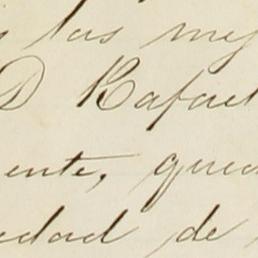 las mej
D Rafael
ente, qued
edad de